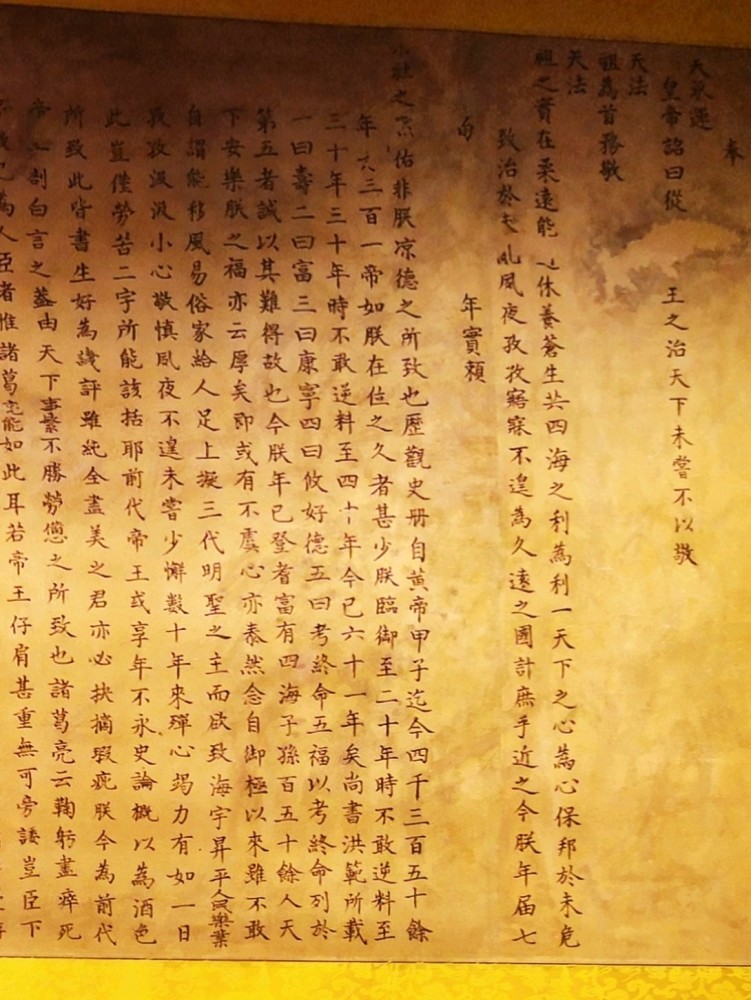 奉
天承運
皇帝詔曰從 王之治天下未嘗不以敬
天法
祖為首務敬
天法
祖之實在柔遠能 休養蒼生共四海之利為利一天下之心為心保邦於未危
致治於 夙夜孜孜寤寐不遑為久遠之國計庶乎近之今朕年屆七
旬 年實賴
社之 佑非朕凉德之所致也歷觀史册自黄帝甲子迄今四千三百五十餘
年 三百一帝如朕在位之久者甚少朕臨御至二十年時不敢逆料至
三十年三十年時不敢逆料至四十年今已六十一年矣尚書洪範所載
一曰壽二曰富三曰康寧四曰攸好德五曰考終命五福以考終命列於
第五者誠以其難得故也今朕年已登耆富有四海子孫百五十餘人天
下安樂朕之福亦云厚矣即或有不虞心亦泰然念自御極以來雖不敢
自謂能移風易俗家給人足上擬三代明聖之主而欲致海宇昇平人民樂業
孜孜汲汲小心敬慎夙夜不遑未嘗少懈數十年來殫心竭力有如一日
此豈僅勞苦二字所能該括耶前代帝王或享年不永史論概以為酒色
所致此皆書生好為譏評雖純全盡美之君亦必抉摘瑕疵朕今為前代
帝 剖白言之蓋由天下事繁不勝勞憊之所致也諸葛亮云鞠躬盡瘁死
為人臣者惟諸葛亮能如此耳若帝王仔肩甚重無可旁諉豈臣下